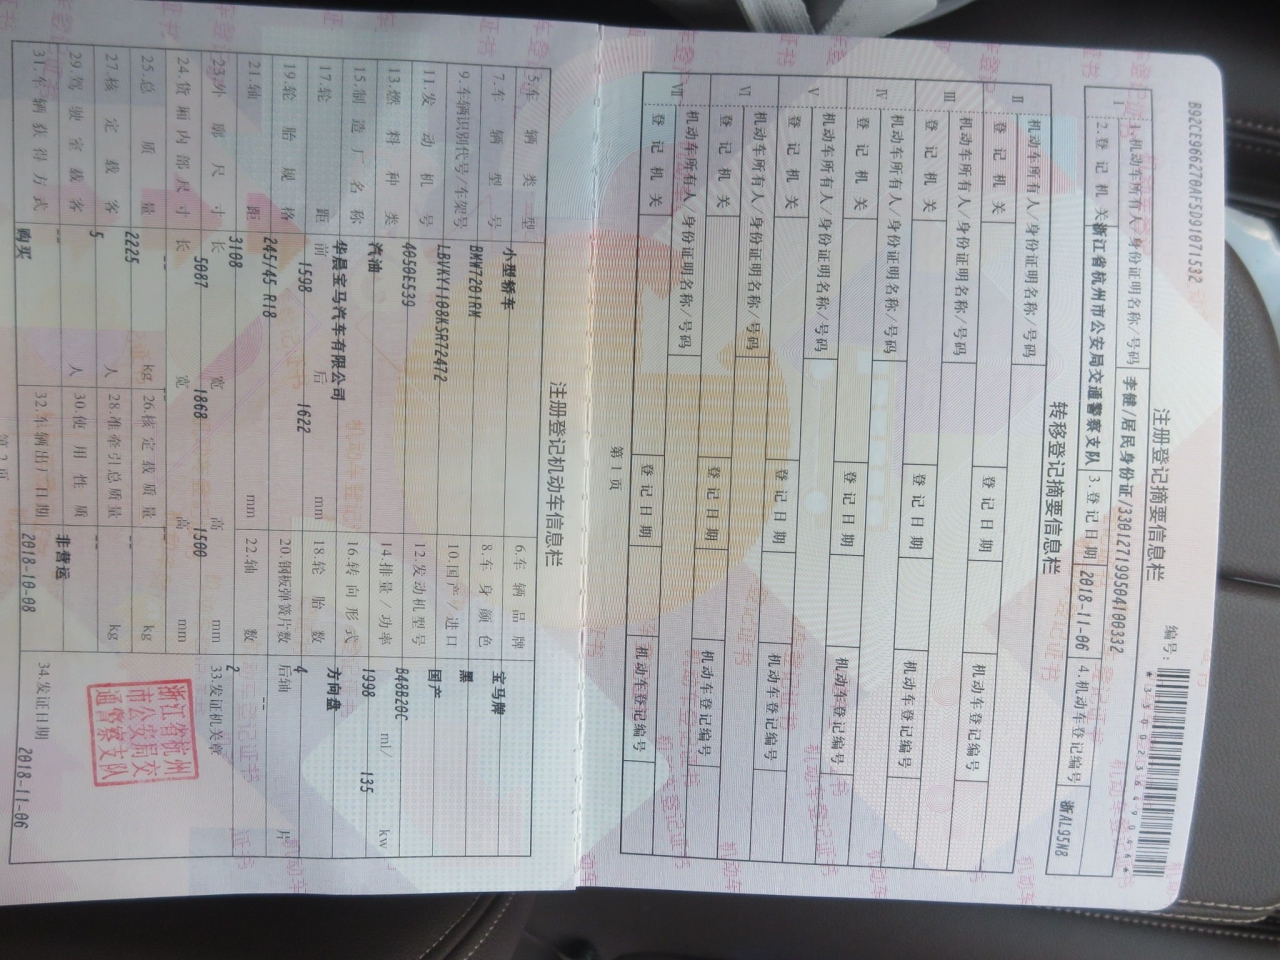 B92CE966270AF5D91071532
注册登记摘要信息栏
编号:
*330023649046*
I
1.机动车所有人/身份证明名称/号码 李健/居民身份证/330127199504100332
2.登记机关 浙江省杭州市公安局交通警察支队 3.登记日期 2018-11-06 4.机动车登记编号 浙AL95N8
转移登记摘要信息栏
II 机动车所有人/身份证明名称/号码
登记机关 登记日期 机动车登记编号
III 机动车所有人/身份证明名称/号码
登记机关 登记日期 机动车登记编号
IV 机动车所有人/身份证明名称/号码
登记机关 登记日期 机动车登记编号
V 机动车所有人/身份证明名称/号码
登记机关 登记日期 机动车登记编号
VI 机动车所有人/身份证明名称/号码
登记机关 登记日期 机动车登记编号
VII 机动车所有人/身份证明名称/号码
登记机关 登记日期 机动车登记编号
第1页
注册登记机动车信息栏
5.车辆类型 小型轿车 6.车辆品牌 宝马牌
7.车辆型号 BMW7201RM 8.车身颜色 黑
9.车辆识别代号/车架号 LBVKY1108KSR72472 10.国产/进口 国产
11.发动机号 4050E539 12.发动机型号 B48B20C
13.燃料种类 汽油 14.排量/功率 1998 ml/ 135 kw
15.制造厂名称 华晨宝马汽车有限公司 16.转向形式 方向盘
17.轮距 前 1598 后 1622 mm 18.轮胎数 4
19.轮胎规格 245/45 R18 20.钢板弹簧片数 后轴 -- 片
21.轴距 3108 mm 22.轴数 2
23.外廓尺寸 长 5087 宽 1868 高 1500 mm 33.发证机关章
24.货厢内部尺寸 长 -- 宽 -- 高 -- mm
25.总质量 2225 kg 26.核定载质量 -- kg
27.核定载客 5 人 28.准牵引总质量 -- kg
29.驾驶室载客 -- 人 30.使用性质 非营运
31.车辆获得方式 购买 32.车辆出厂日期 2018-10-08 34.发证日期 2018-11-06
浙江省杭州
市公安局交
通警察支队
第2页